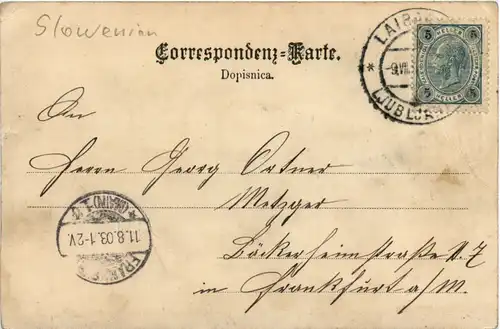 Slowenien
Correspondenz-Karte.
Dopisnica.
LAIBACH
LJUBLJANA
5 HELLER 5
An
Herrn Georg Ortner
Metzger
Böckerheimstraße 7
in Frankfurt a/M.
(MAIN) 1
11.8.03.1-2V.
FRANKFURT